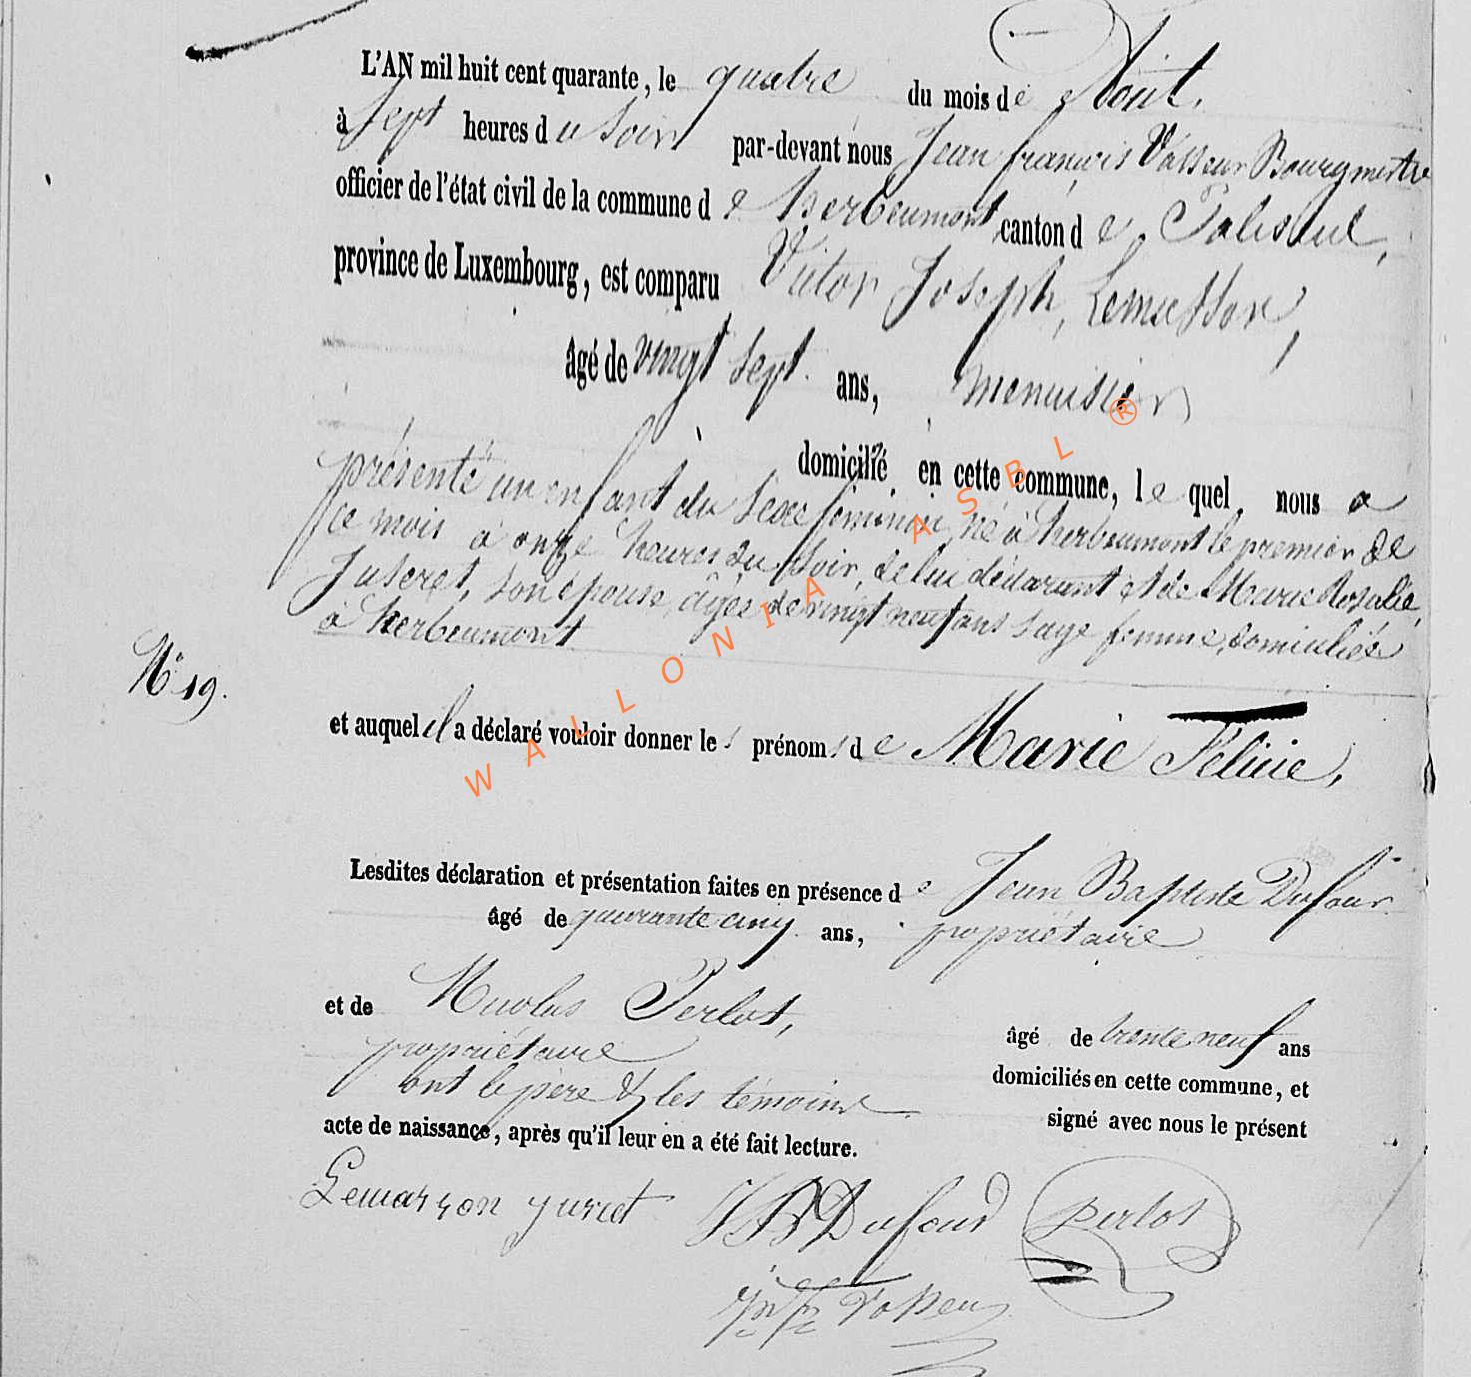 L'AN mil huit cent quarante, le quatre du mois de Août.
à sept heures du soir par-devant nous Jean françois Vasseur Bourgmestre
officier de l'état civil de la commune de herbeumont, canton de Paliseul,
province de Luxembourg, est comparu Victor Joseph,
âgé de vingt sept ans, menuisier
domicilié en cette commune, lequel nous a
présenté un enfant du sexe féminin né à herbeumont le premier de
ce mois à onze heures du soir, de lui déclarant et de Marie Rosalie,
son épouse, âgée de vingt neuf ans sage femme, domiciliés
à herbeumont
No 19.
et auquel il a déclaré vouloir donner les prénoms de Marie Félicie,
Lesdites déclaration et présentation faites en présence de Jean Baptiste Dufour
âgé de quarante cinq ans, propriétaire
et de Nicolas Perlot, âgé de trente neuf ans
propriétaire domiciliés en cette commune, et
ont le père & les témoins signé avec nous le présent
acte de naissance, après qu'il leur en a été fait lecture.
JB Dufour Perlot
WALLONIA ASBL ®